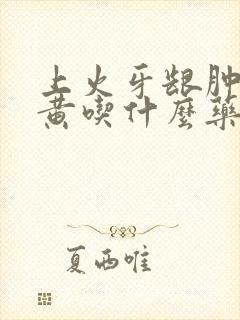 上火牙龈肿
黄喫什麼藥
夏西唯